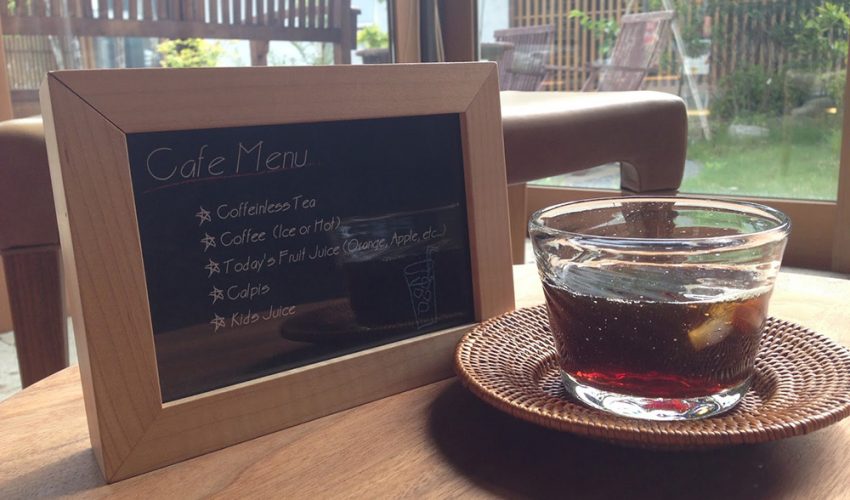 Cafe Menu...
☆ Coffeinless Tea
☆ Coffee (Ice or Hot)
☆ Today's Fruit Juice (Orange, Apple, etc...)
☆ Calpis
☆ Kids Juice